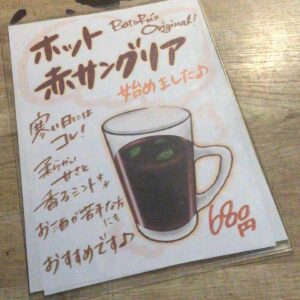 ホット
Original!
赤サングリア
始めました♪
寒い日には
コレ!
柔らかい
甘さと
香るミント
お酒が苦手な方
にも
おすすめです♪
680円